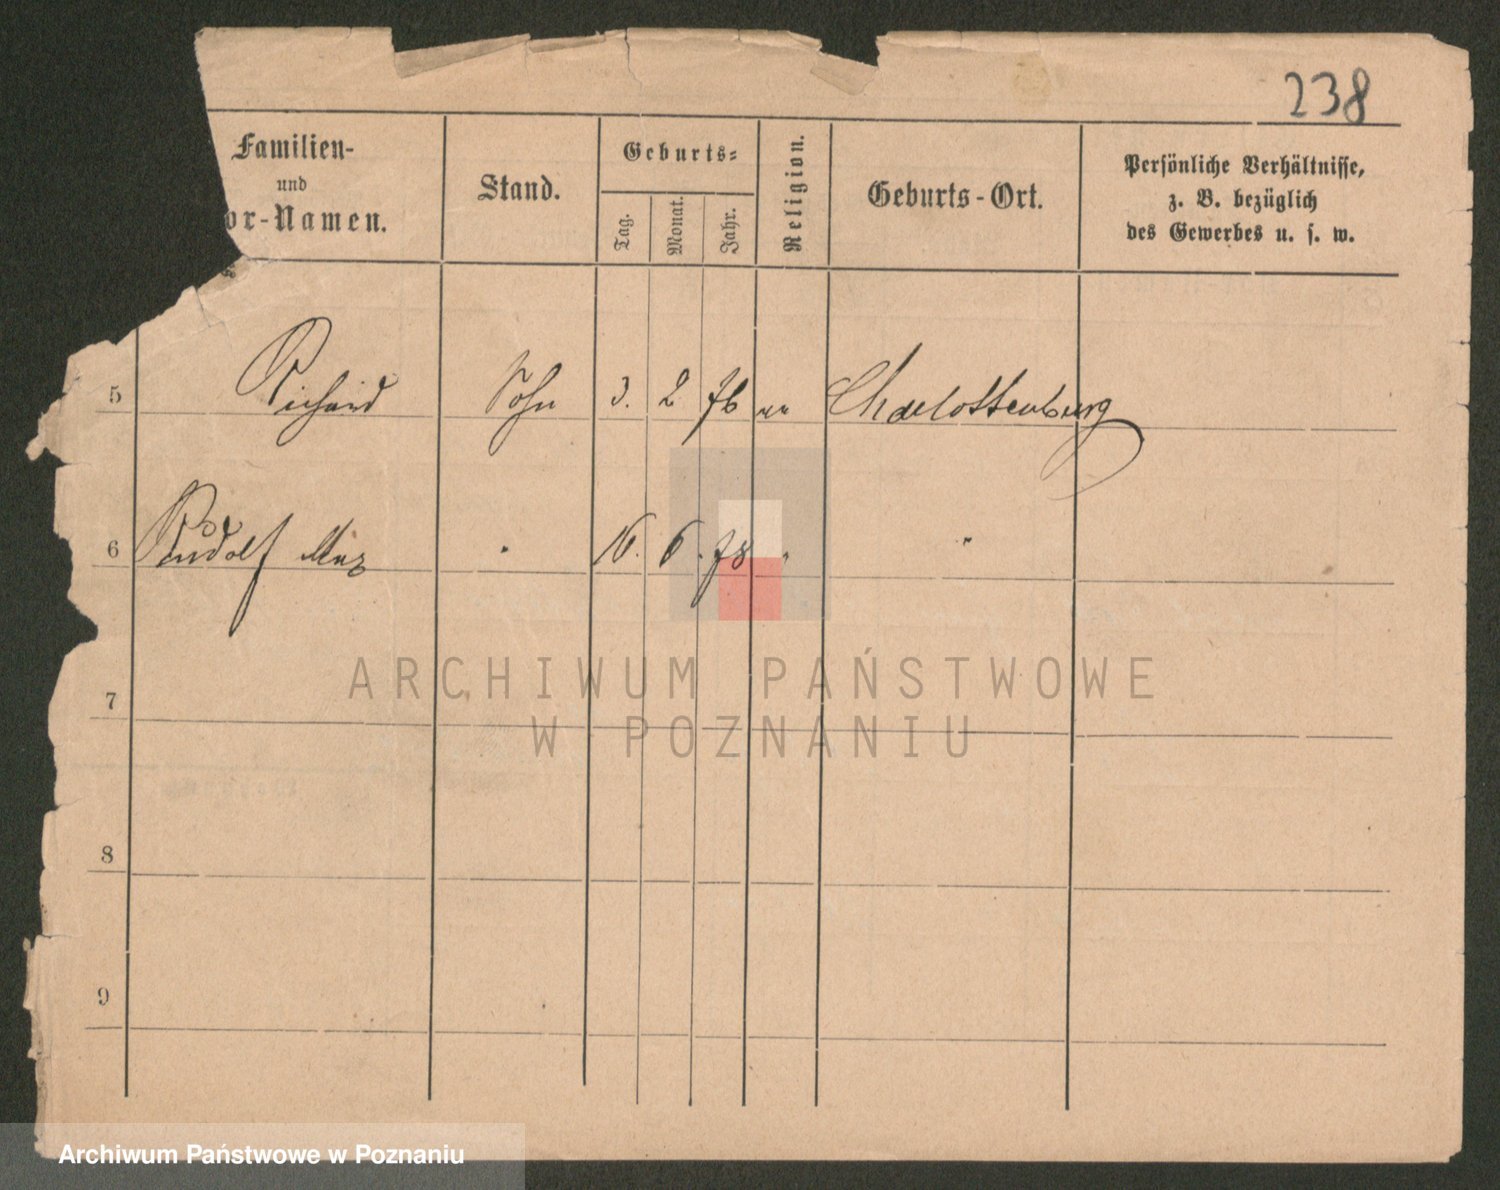 238
Familien-
und
or-Namen.
Stand.
Geburts-
Tag.
Monat.
Jahr.
Religion.
Geburts-Ort.
Persönliche Verhältnisse,
z. B. bezüglich
des Gewerbes u. s. w.
5 Richard Sohn 3. 2 76 " Charlottenburg
6 Rudolf Max " 16. 6. 78 " "
7
8
9
ARCHIWUM PAŃSTWOWE
W POZNANIU
Archiwum Państwowe w Poznaniu